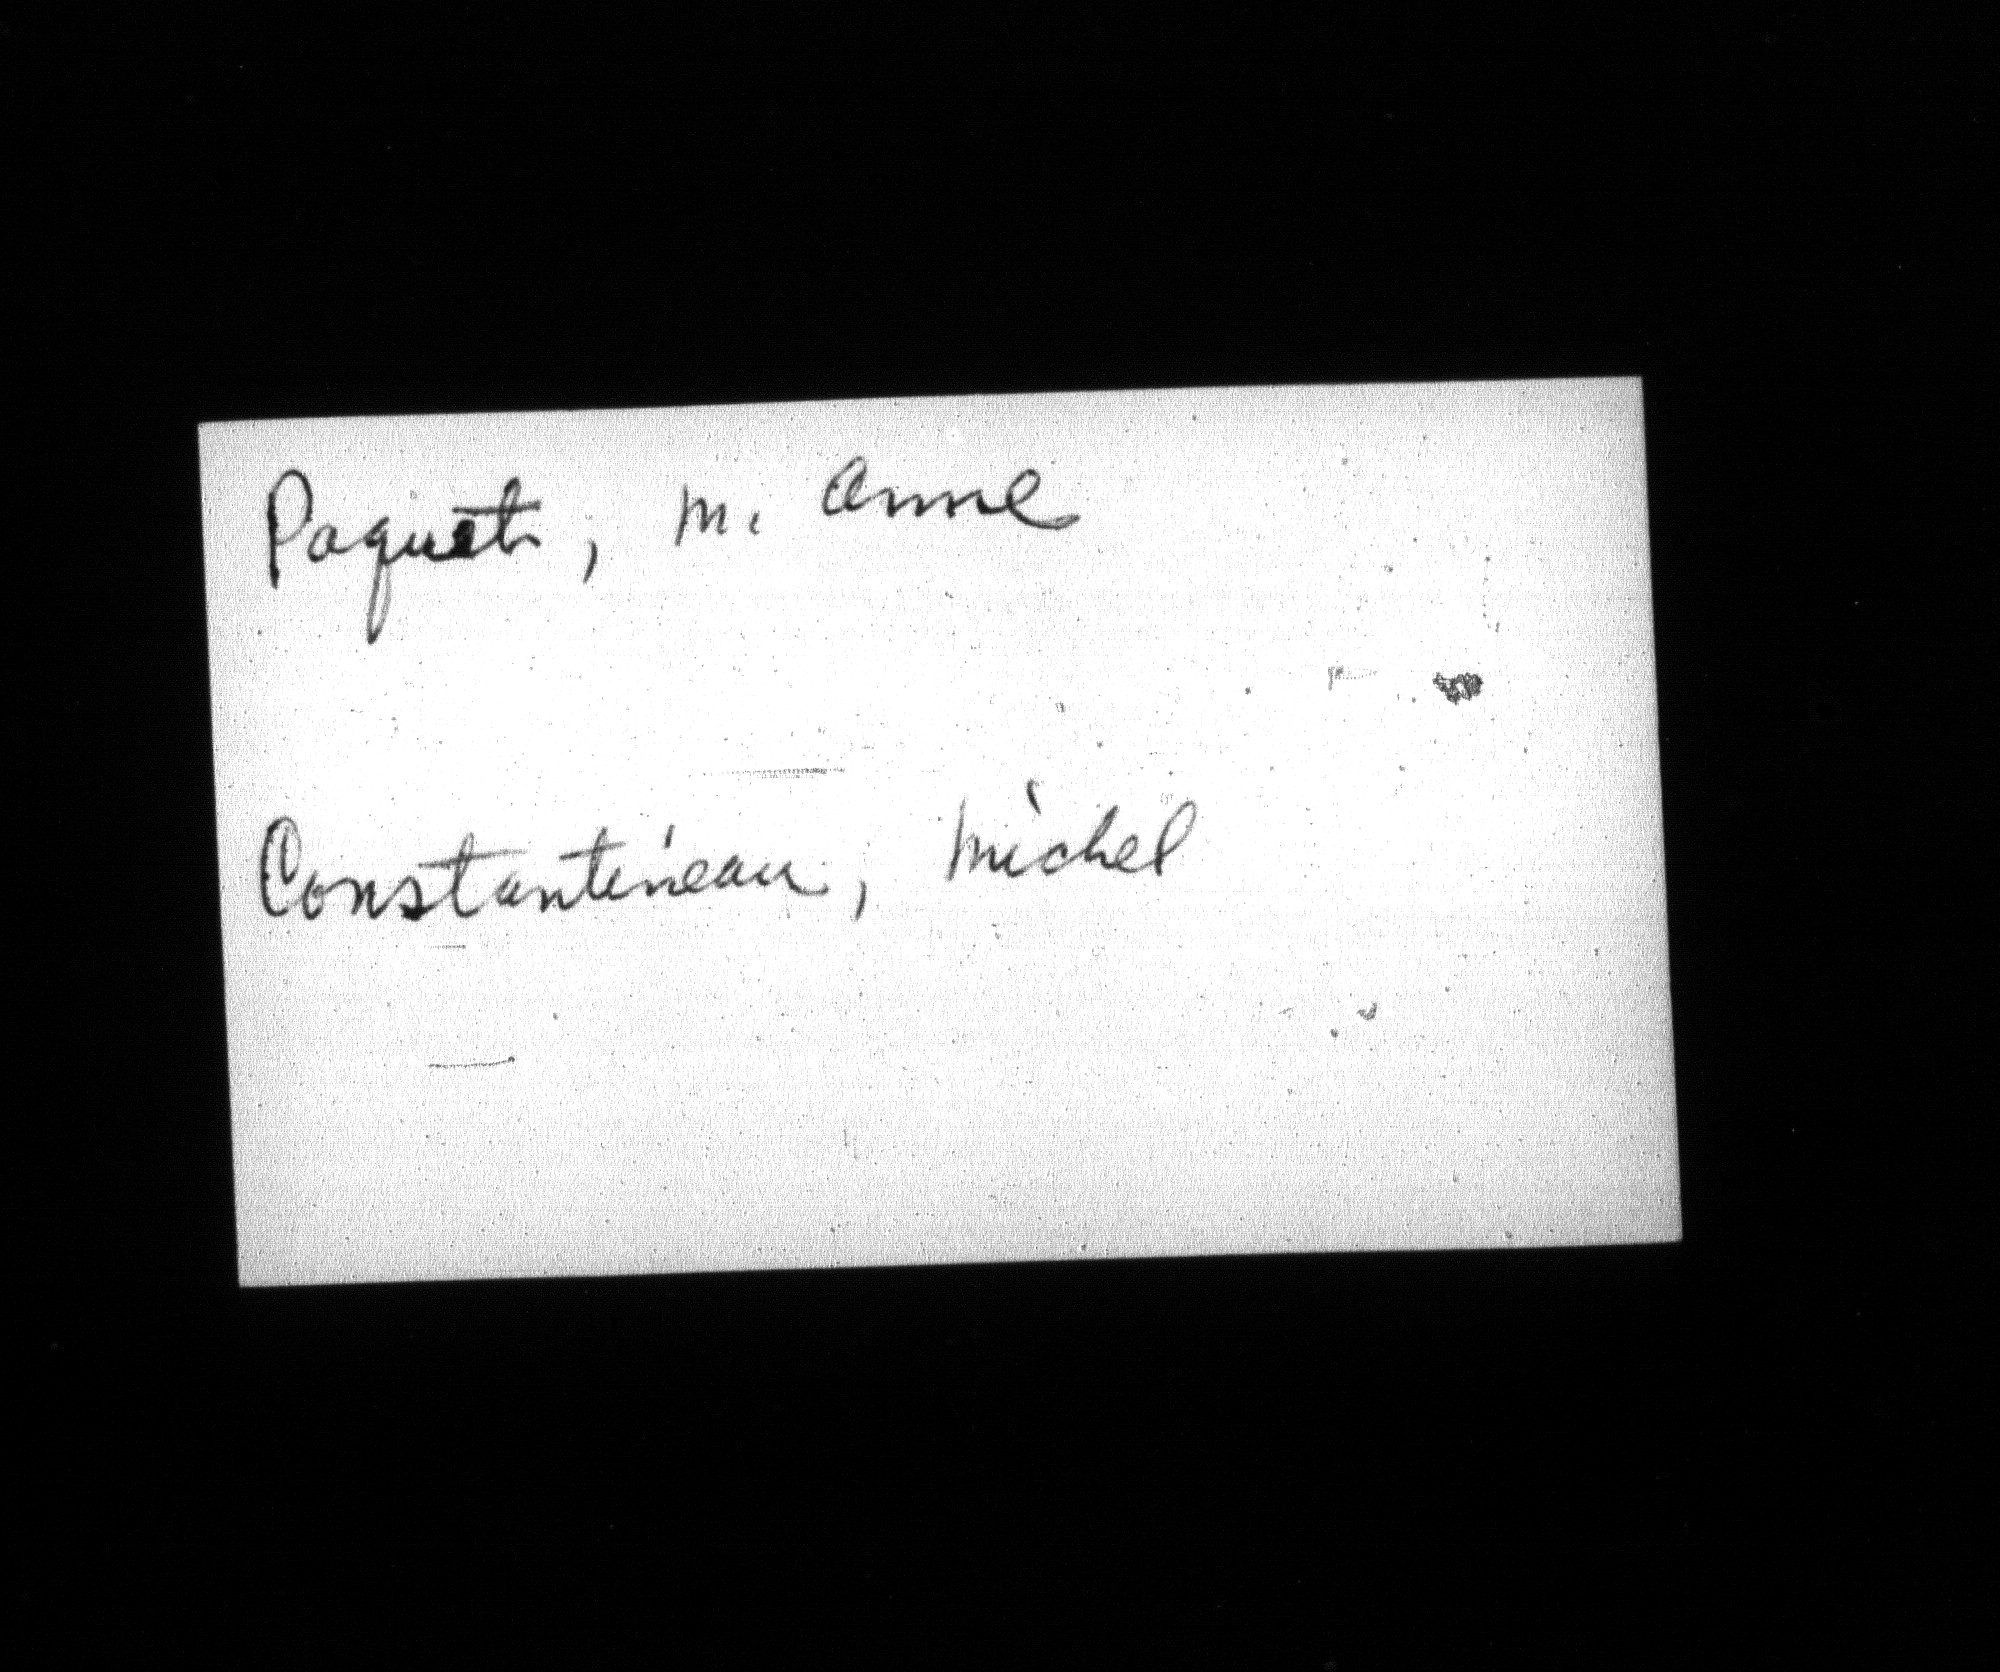 Paquet, M. Anne
Constantineau, Michel